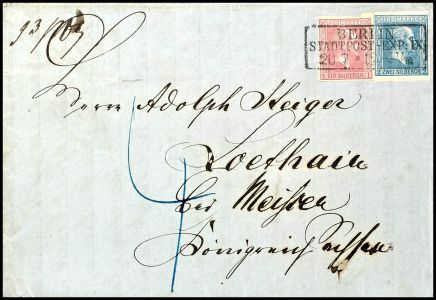 FREIMARKE FREIMARKE
BERLIN
STADTPOST-EXP. IX
20 7
1 EIN SILBERGR. 1 2 ZWEI SILBERGR. 2
Herrn Adolph Steiger
Loethain
bei Meissen
Königreich Sachsen
4